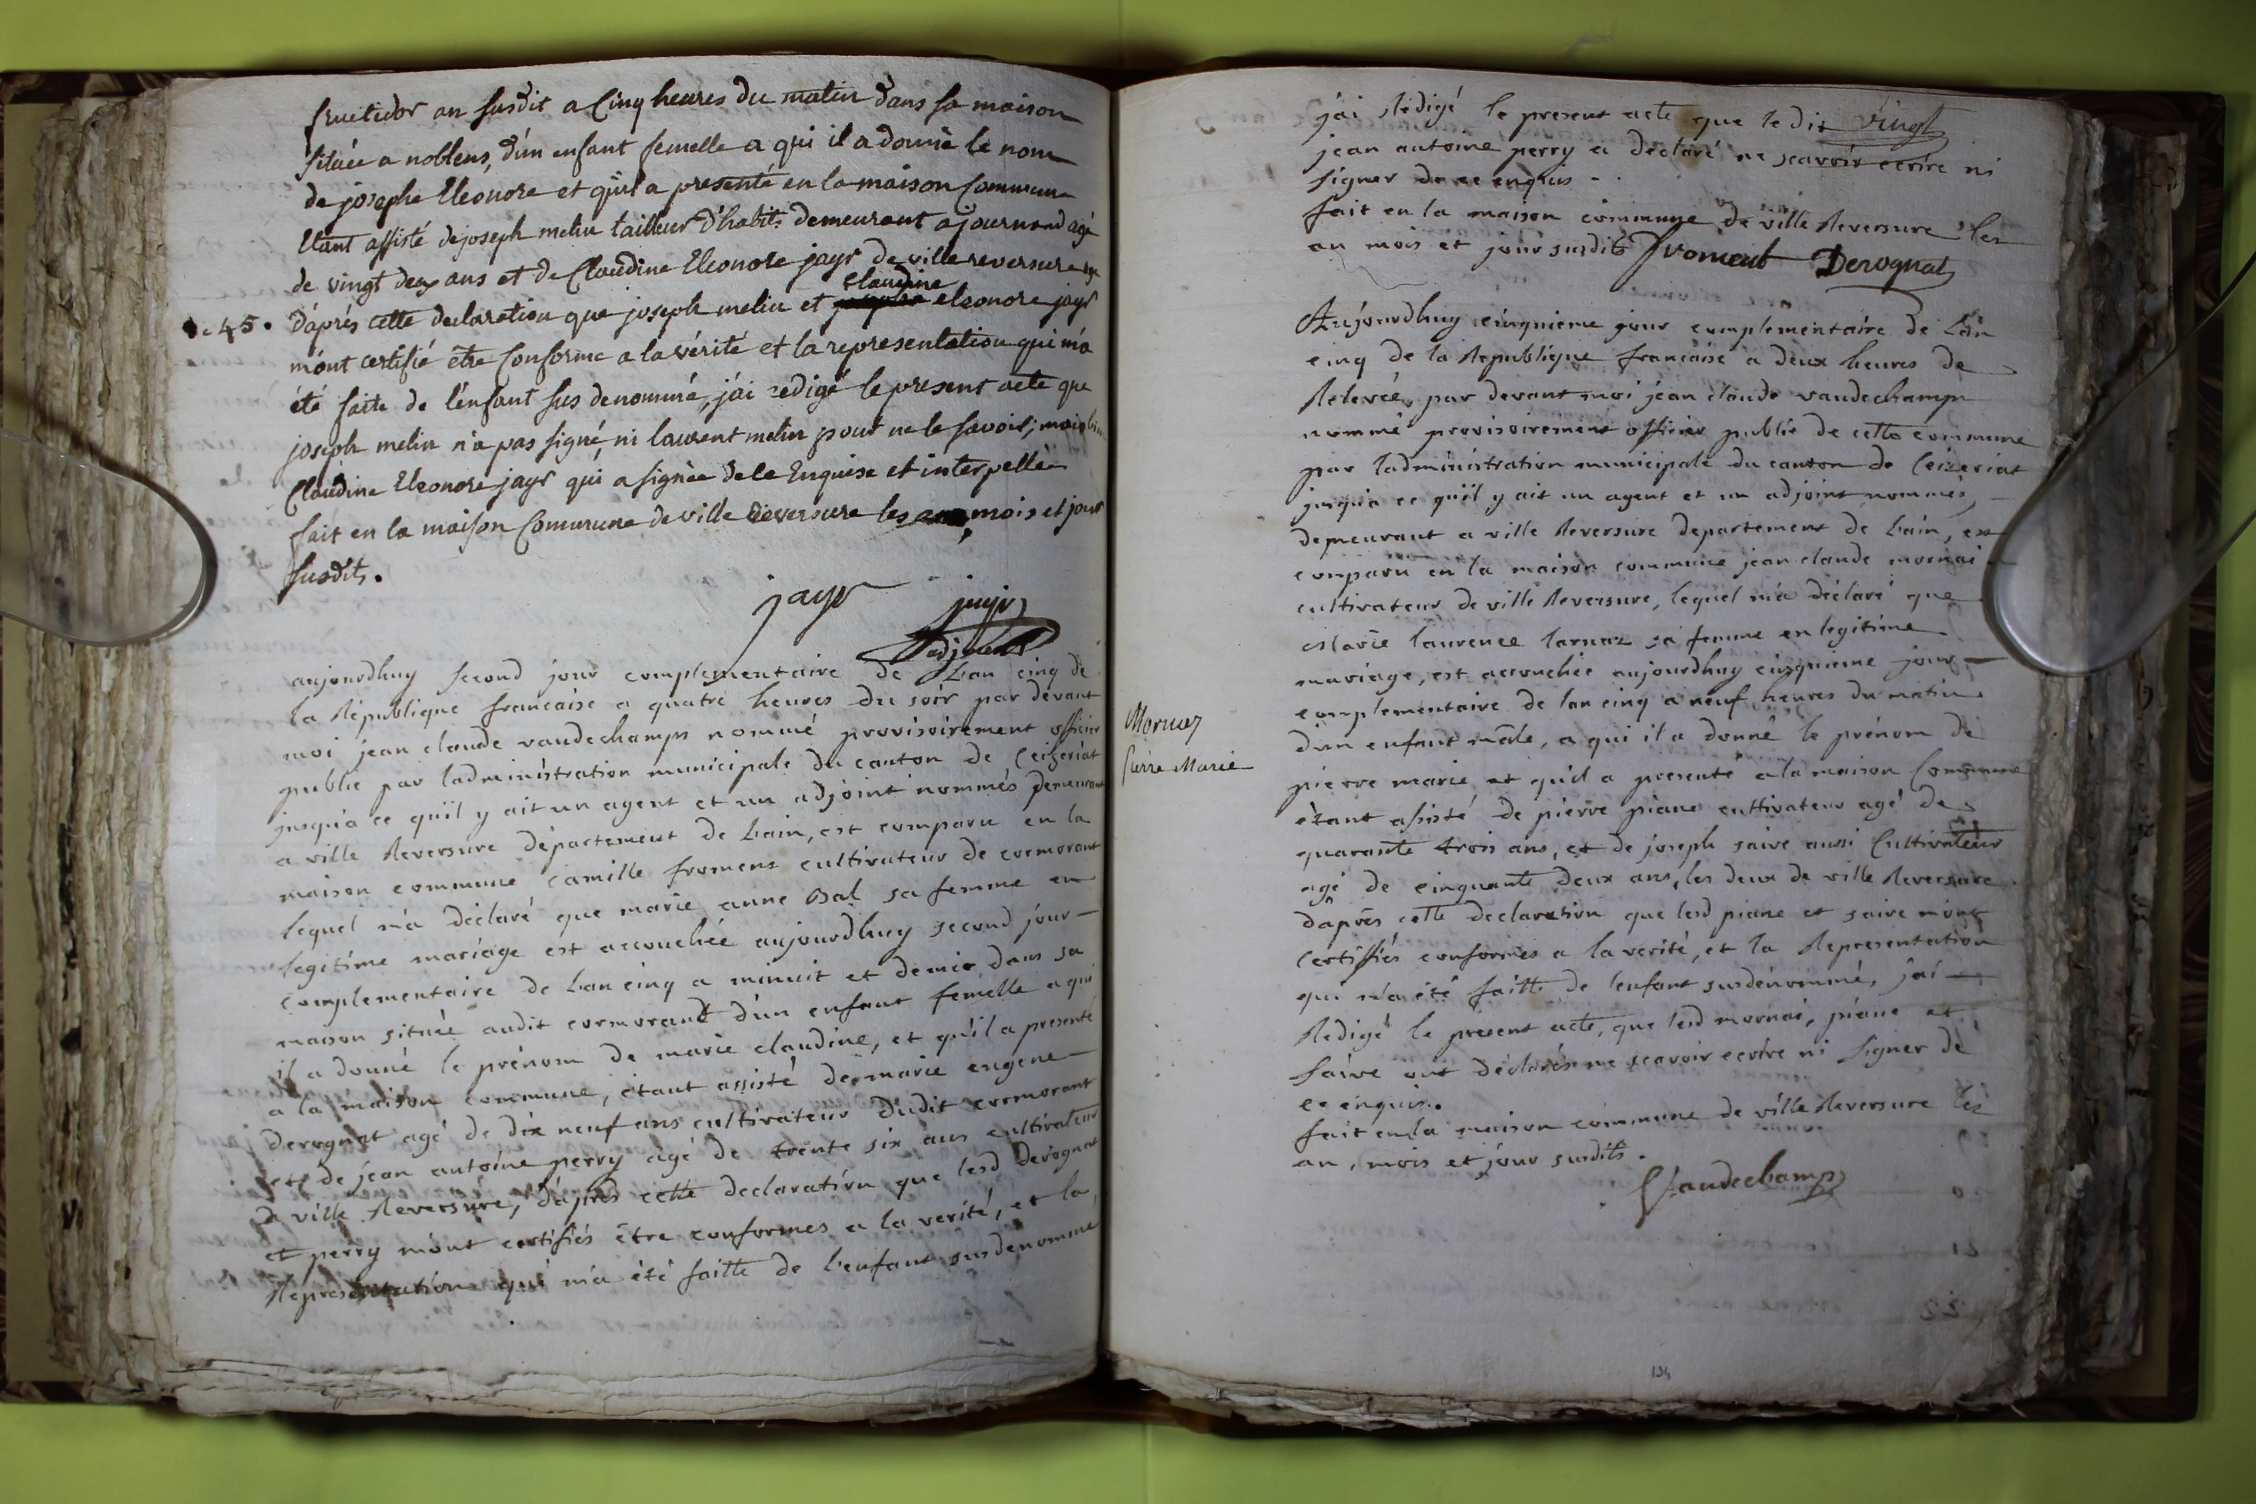 fructidor an susdit a Cinq heures du matin dans sa maison
située a noblens, d'un enfant femelle a qui il a donné le nom
de josephe Eleonore et qu'il a presenté en la maison Commune
Etant assisté de joseph melin tailleur d'habits demeurant a journand agé
de vingt deux ans et de Claudine Eleonore jayr de ville reversure
claudine
45. d'aprés cette declaration que joseph melin et eleonore jayr
m'ont certifié etre Conforme a la vérité et la representation qui m'a
été faite de l'enfant sus denommé, j'ai redigé le present acte que
joseph melin n'a pas signé, ni laurent melin pour ne le savoir; mais bien
Claudine Eleonore jayr qui a signée de le Enquise et interpellée
fait en la maison Commune de ville Reversure les mois et jour
susdits.
jayr jayr
adjoint
aujourdhuy second jour complementaire de Lan cinq de
la République francaise a quatre heures du soir par devant
moi jean claude vaudechamps nommé provisoirement officier
public par ladministration municipale du canton de Ceizeriat
jusqu'a ce qu'il y ait un agent et un adjoint nommés demeurant
a ville Reversure département de Lain, est comparu en la
maison commune camille froment cultivateur de cormorant
lequel m'a déclaré que marie anne Bal sa femme en
legitime mariage est accouchée aujourdhuy second jour
complementaire de Lan cinq a minuit et demie dans sa
maison située audit cormorant d'un enfant femelle a qui
il a donné le prénom de marie claudine, et qu'il a presenté
a la maison commune, étant assisté de marie eugene
derognat agé de dix neuf ans cultivateur dudit cormorant
et de jean antoine perry agé de trente six ans cultivateur
a ville Reversure, d'aprés cette declaration que lesd derognat
et perry m'ont certifiés être conformes a la verité, et la
Representation qui m'a été faitte de l'enfant susdenommé
j'ai Rédigé le present acte que ledit Vingt
jean antoine perry a déclaré ne scavoir ecrire ni
signer de ce enquis.
fait en la maison commune de ville Reversure les
an mois et jour susdits froment Derognat
Aujourdhuy cinquieme jour complementaire de Lan
cinq de la République francaise a deux heures de
Relevée, par devant moi jean claude vaudechamps
nommé provisoirement officier public de cette commune
par ladministration municipale du canton de Ceizeriat
jusqu'a ce qu'il y ait un agent et un adjoint nommés,
demeurant a ville Reversure departement de Lain, est
comparu en la maison commune jean claude mornai
cultivateur de ville Reversure, lequel m'a déclaré que
Marie laurence larnaz sa femme en legitime
mariage, est accouchée aujourdhuy cinquieme jour
complementaire de lan cinq a neuf heures du matin
d'un enfant mâle, a qui il a donné le prénom de
Mornay
pierre marie et qu'il a presenté a la maison Commune
Pierre Marie
étant assisté de pierre piane cultivateur agé de
quarante trois ans, et de joseph saive aussi Cultivateur
agé de cinquante deux ans, les deux de ville Reversure
d'aprés cette declaration que lesd piane et saive m'ont
Certiffiés conformes a la verité, et la Representation
qui m'a été faitte de lenfant susdénommé, j'ai
Redigé le present acte, que lesd mornai, piane et
saive ont déclarés ne scavoir ecrire ni signer de
ce enquis.
fait en la maison commune de ville Reversure les
an, mois et jour susdits.
Vaudechamps
134